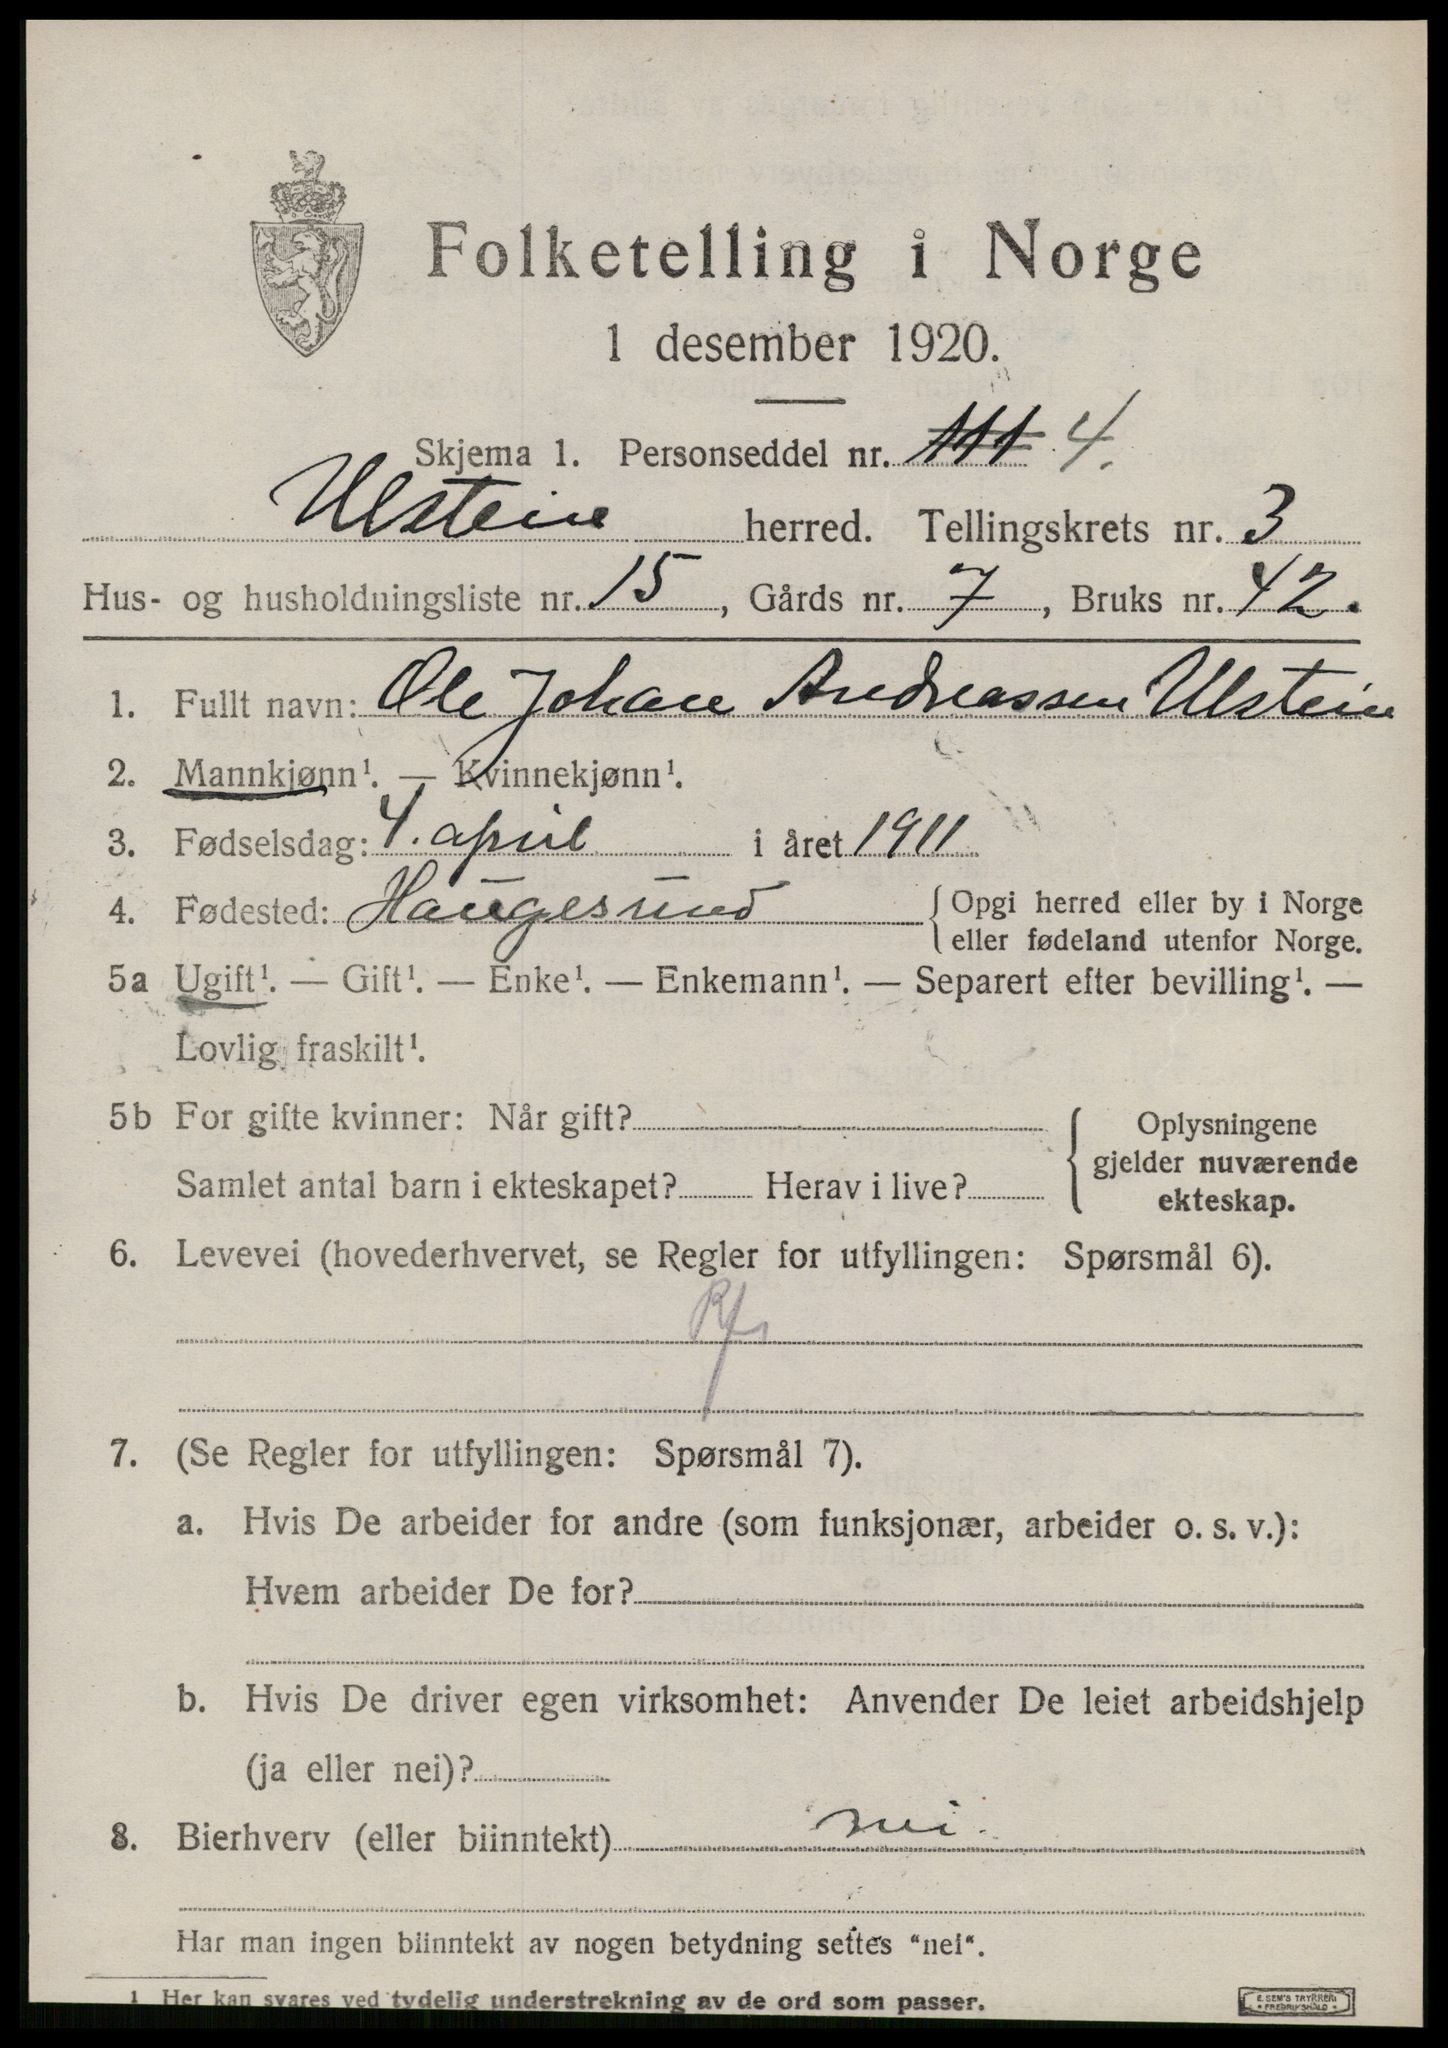 Folketelling i Norge
1 desember 1920.
Skjema 1. Personseddel nr. 111 4.
Ulstein herred. Tellingskrets nr. 3
Hus- og husholdningsliste nr. 15, Gårds nr. 7, Bruks nr. 42.
1. Fullt navn: Ole Johan Andreassen Ulstein
2. Mannkjønn¹. — Kvinnekjønn¹.
3. Fødselsdag: 4. april i året 1911
4. Fødested: Haugesund {Opgi herred eller by i Norge
eller fødeland utenfor Norge.
5a Ugift¹. — Gift¹. — Enke¹. — Enkemann¹. — Separert efter bevilling¹. —
Lovlig fraskilt¹.
5b For gifte kvinner: Når gift? { Oplysningene
gjelder nuværende
Samlet antal barn i ekteskapet? Herav i live?
ekteskap.
6. Levevei (hovederhvervet, se Regler for utfyllingen: Spørsmål 6).
7. (Se Regler for utfyllingen: Spørsmål 7).
a. Hvis De arbeider for andre (som funksjonær, arbeider o. s. v.):
Hvem arbeider De for?
b. Hvis De driver egen virksomhet: Anvender De leiet arbeidshjelp
(ja eller nei)?
8. Bierhverv (eller biinntekt) nei.
Har man ingen biinntekt av nogen betydning settes "nei".
1 Her kan svares ved tydelig understrekning av de ord som passer.
E. SEM'S TRYKKERI
FREDRIKSHALD